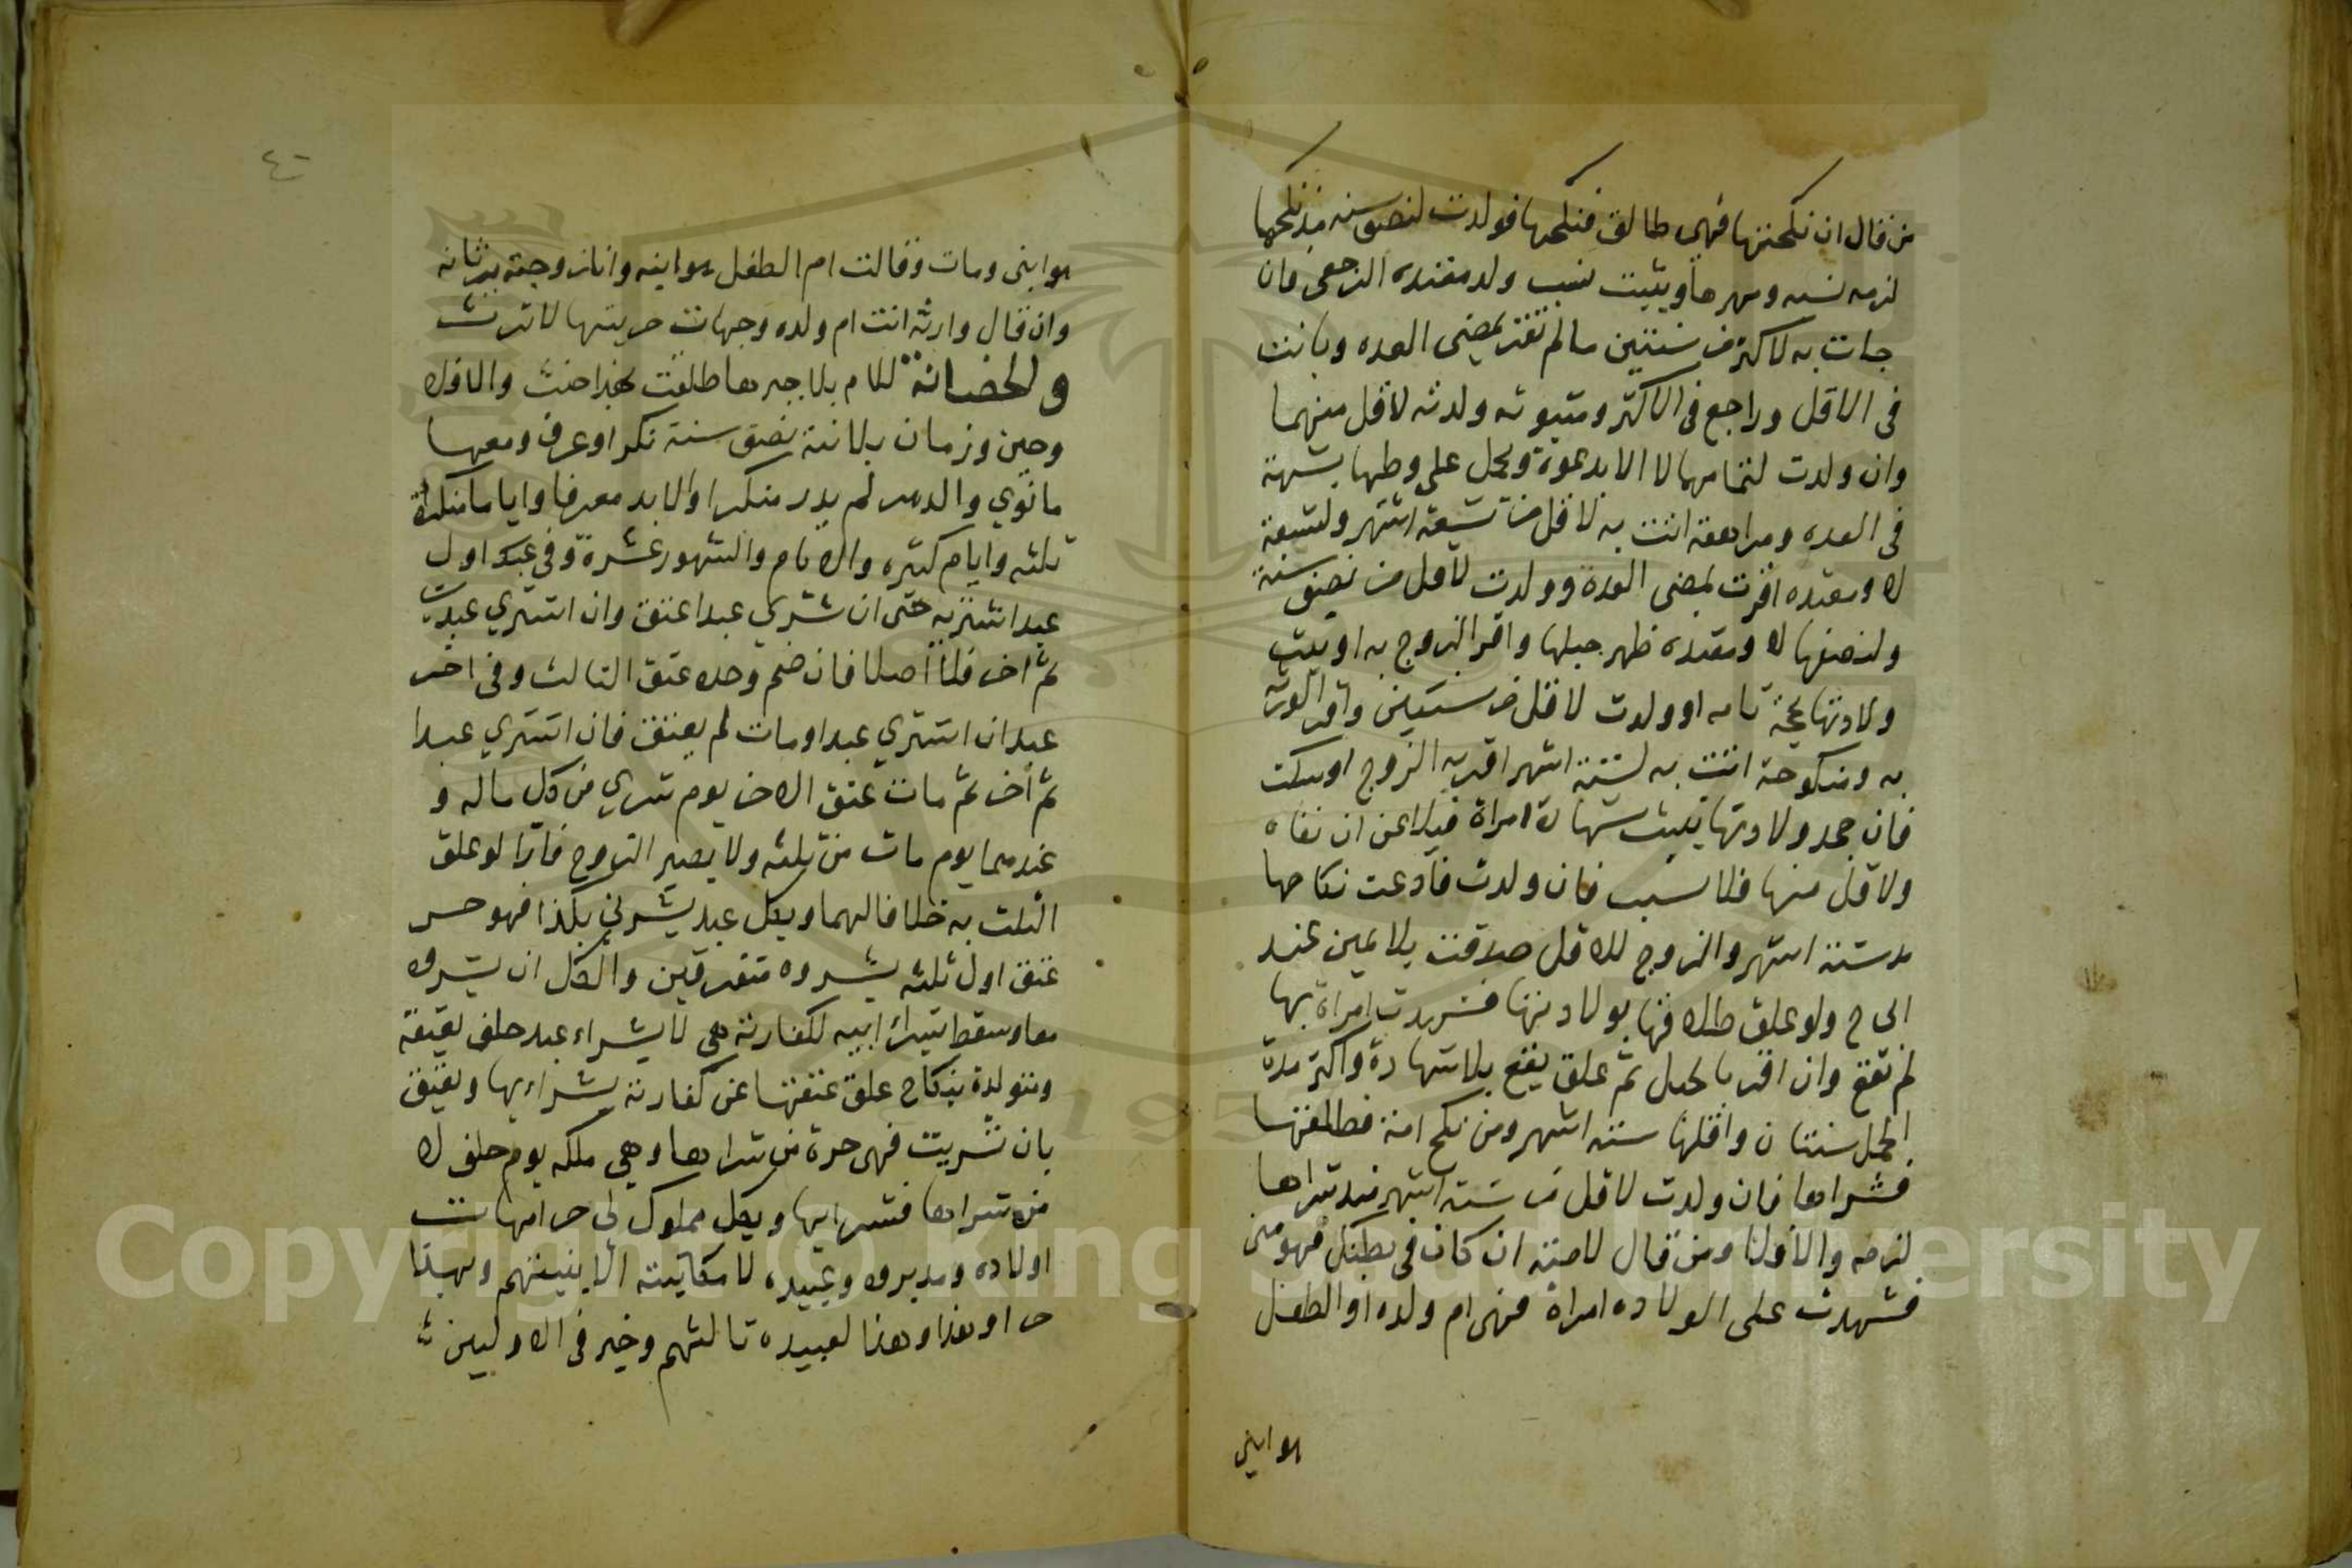 من قال ان نكحتها فهي طالق فنكحها فولدت لنصف سنه منذ نكحها
لزمه نسبه ومهرها ويثبت نسب ولد معتده الرجعي فان
جات به لاكثر من سنتين ما لم تقر بمضي العده وبانت
في الاقل وراجع في الاكثر ومبتوته ولدته لاقل منهما
وان ولدت لتمامهما لا الا بدعوة ويحمل على وطها بشبهة
في العده ومراهقة اتت به لاقل من تسعة اشهر ولتسعة
لا ومعتده اقرت بمضي العدة وولدت لاقل من نصف سنة
ولنصفها لا ومعتده ظهر حبلها واقر الزوج به او ثبت
ولادتها بحجة تامه او ولدت لاقل من سنتين واقر الورثه
به ومنكوحة اتت به لستة اشهر اقر به الزوج او سكت
فان جحد ولادتها يثبت بشهادة امراة فيلاعن ان نفاه
ولاقل منها فلا نسب فان ولدت فادعت نكاحها
مد ستة اشهر والزوج للاقل صدقت بلا يمين عند
ابي ح ولو علق طلاقها بولادتها فشهدت امراة بها
لم تقع وان اقر بالحبل ثم علق يقع بلا شهادة واكثر مدة
الحمل سنتان واقلها ستة اشهر ومن نكح امة فطلقها
فشراها فان ولدت لاقل من ستة اشهر منذ شراها
لزمه والا فلا ومن قال لامته ان كان في بطنك فهو مني
فشهدت على الولاده امراة فهي ام ولده او الطفل
هو ابني
٤٠
هو ابني ومات وقالت ام الطفل هو ابنه وانا زوجته يرثانه
وان قال وارثه انت ام ولده وجهلت حريتها لا ترث
والحضانة للام بلا جبرها طلقت
وحين وزمان بلا نية نصف سنة نكر او عرف ومعها
ما نوي والدهر لم يدر منكرا والابد معرفا وايام منكرة
ثلثه وايام كثيره والايام والشهور عشرة وفي عبد اول
عبد اشتريه حر ان شري عبدا عتق وان اشتري عبدين
ثم اخر فلا اصلا فان ضم وحده عتق الثالث وفي اخر
عبد ان اشتري عبدا ومات لم يعتق فان اشتري عبدا
ثم اخر ثم مات عتق الاخر يوم شري من كل ماله و
عندهما يوم مات من ثلثه ولا يصير الزوج فارا لو علق
الثلث به خلافا لهما وبكل عبد بشرني بكذا فهو حر
عتق اول ثلثه بشروه متفرقين والكل ان بشروه
معا وسقط بشراء ابيه لكفارته هي لا بشراء عبد حلف بعتقه
ومستولدة بنكاح علق عتقها عن كفارته بشرائها ويعتق
بان تسريت فهي حرة من تسراها وهي ملكه يوم حلف لا
من شراها فتسراها وبكل مملوك لي حر امهات
اولاده ومدبروه وعبيده لا مكاتبه الا بنيتهم وبهذا
حر او هذا وهذا لعبيده ثالثهم وخير في الاولين